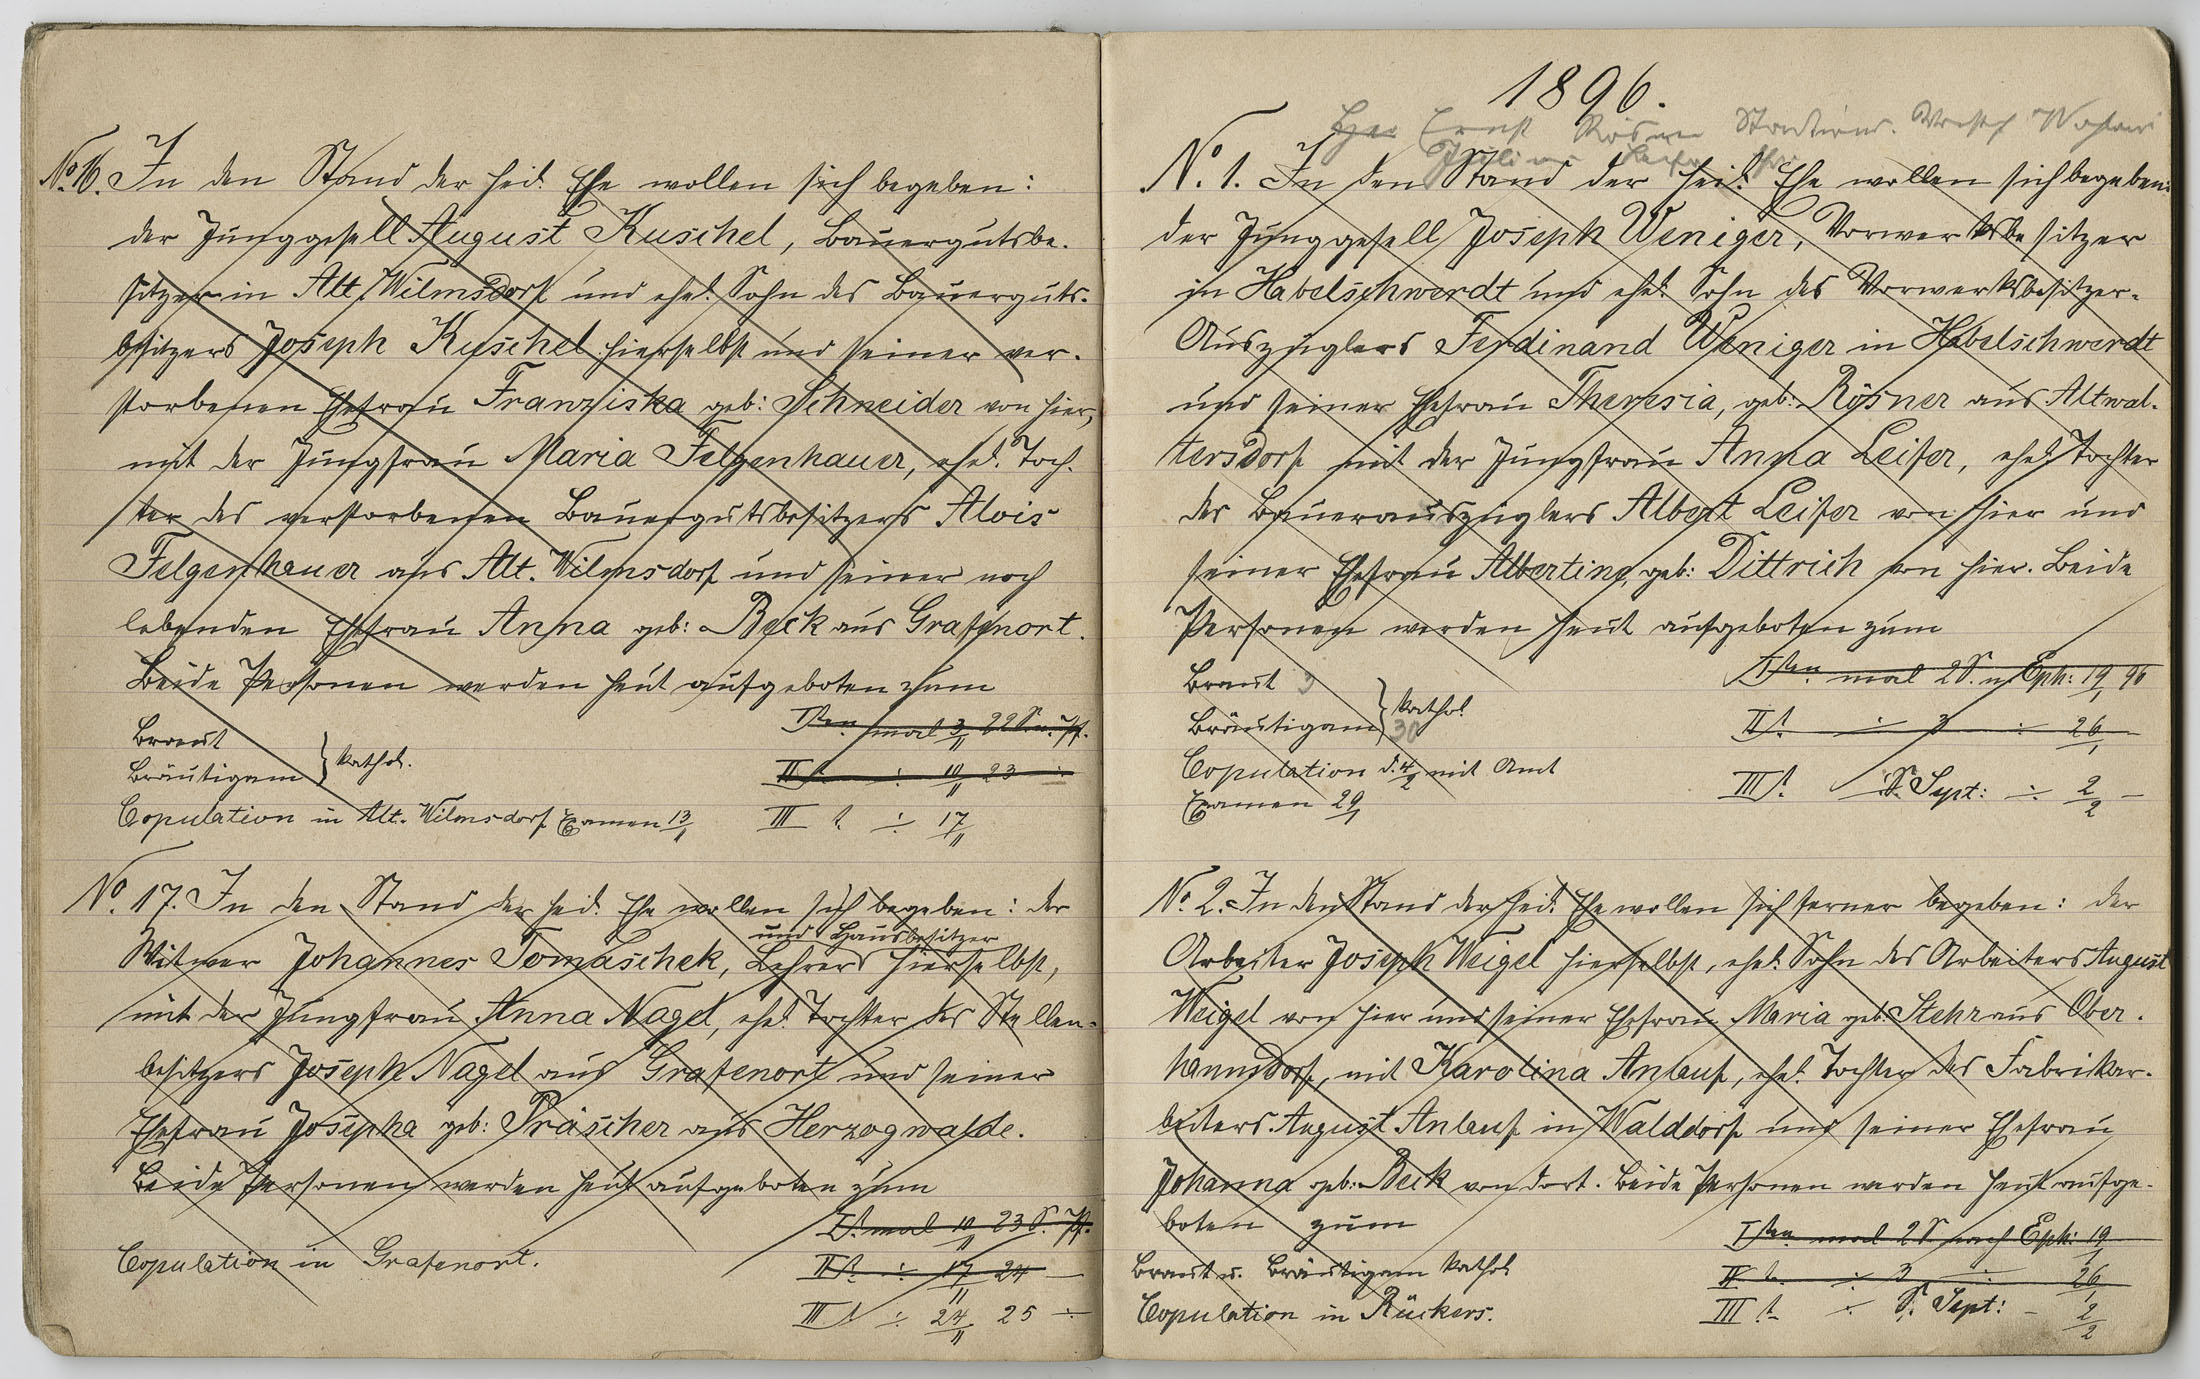 No. 16. In den Stand der heil. Ehe wollen sich begeben:
der Junggesell August Kuschel, Bauergutsbe-
sitzer in Alt Wilmsdorf und ehel. Sohn des Bauerguts-
besitzers Joseph Kuschel hierselbst und seiner ver-
storbenen Ehefrau Franziska geb: Schneider von hier,
mit der Jungfrau Maria Felgenhauer, ehel. Toch-
ter des verstorbenen Bauergutsbesitzers Alois
Felgenhauer aus Alt-Wilmsdorf und seiner noch
lebenden Ehefrau Anna geb: Beck aus Grafenort.
Beide Personen werden heut aufgeboten zum
Iten mal 3/11 22 S. n. Pf.
Braut
Bräutigam } kathol.
II t. ÷ 10/11 23 ÷
Copulation in Alt-Wilmsdorf Examen 13/11
III t ÷ 17/11
No. 17. In den Stand der heil. Ehe wollen sich begeben: der
und Hausbesitzer
Witwer Johannes Tomaschek, Lehrer hierselbst,
mit der Jungfrau Anna Nagel, ehel. Tochter des Stellen-
besitzers Joseph Nagel aus Grafenort und seiner
Ehefrau Josepha geb: Präscher aus Herzogwalde.
Beide Personen werden heut aufgeboten zum
I t. mal 10/11 23 S. Pf.
Copulation in Grafenort.
II t. ÷ 17/11 24 —
III t ÷ 24/11 25 ÷
1896.
Ernst Rösner
No. 1. In den Stand der heil. Ehe wollen sich begeben:
der Junggesell Joseph Weniger, Vorwerksbesitzer
in Habelschwerdt und ehel. Sohn des Vorwerksbesitzer-
Auszüglers Ferdinand Weniger in Habelschwerdt
und seiner Ehefrau Theresia, geb: Rösner aus Altwal-
tersdorf mit der Jungfrau Anna Leifer, ehel. Tochter
des Bauerauszüglers Albert Leifer von hier und
seiner Ehefrau Albertine, geb: Dittrich von hier. Beide
Personen werden heut aufgeboten zum
Iten mal 2 S. n. Eph: 19/1 96
Braut 3
Bräutigam } kathol. 30
II t. ÷ 3 ÷ 26/1 —
Copulation d. 4/2 mit Amt
III t. S. Sept: ÷ 2/2 —
Examen 29/1
No. 2. In den Stand der heil. Ehe wollen sich ferner begeben: der
Arbeiter Joseph Weigel hierselbst, ehel. Sohn des Arbeiters August
Weigel von hier und seiner Ehefrau Maria geb: Stehr aus Ober-
hannsdorf, mit Karolina Anlauf, ehel. Tochter des Fabrikar-
beiters August Anlauf in Walddorf und seiner Ehefrau
Johanna geb: Beck von dort. Beide Personen werden heut aufge-
boten zum
Iten mal 2 S nach Eph: 19/1
Braut u. Bräutigam kathol.
II t. ÷ 3 ÷ 26/1
Copulation in Rückers.
III t. ÷ S. Sept: — 2/2